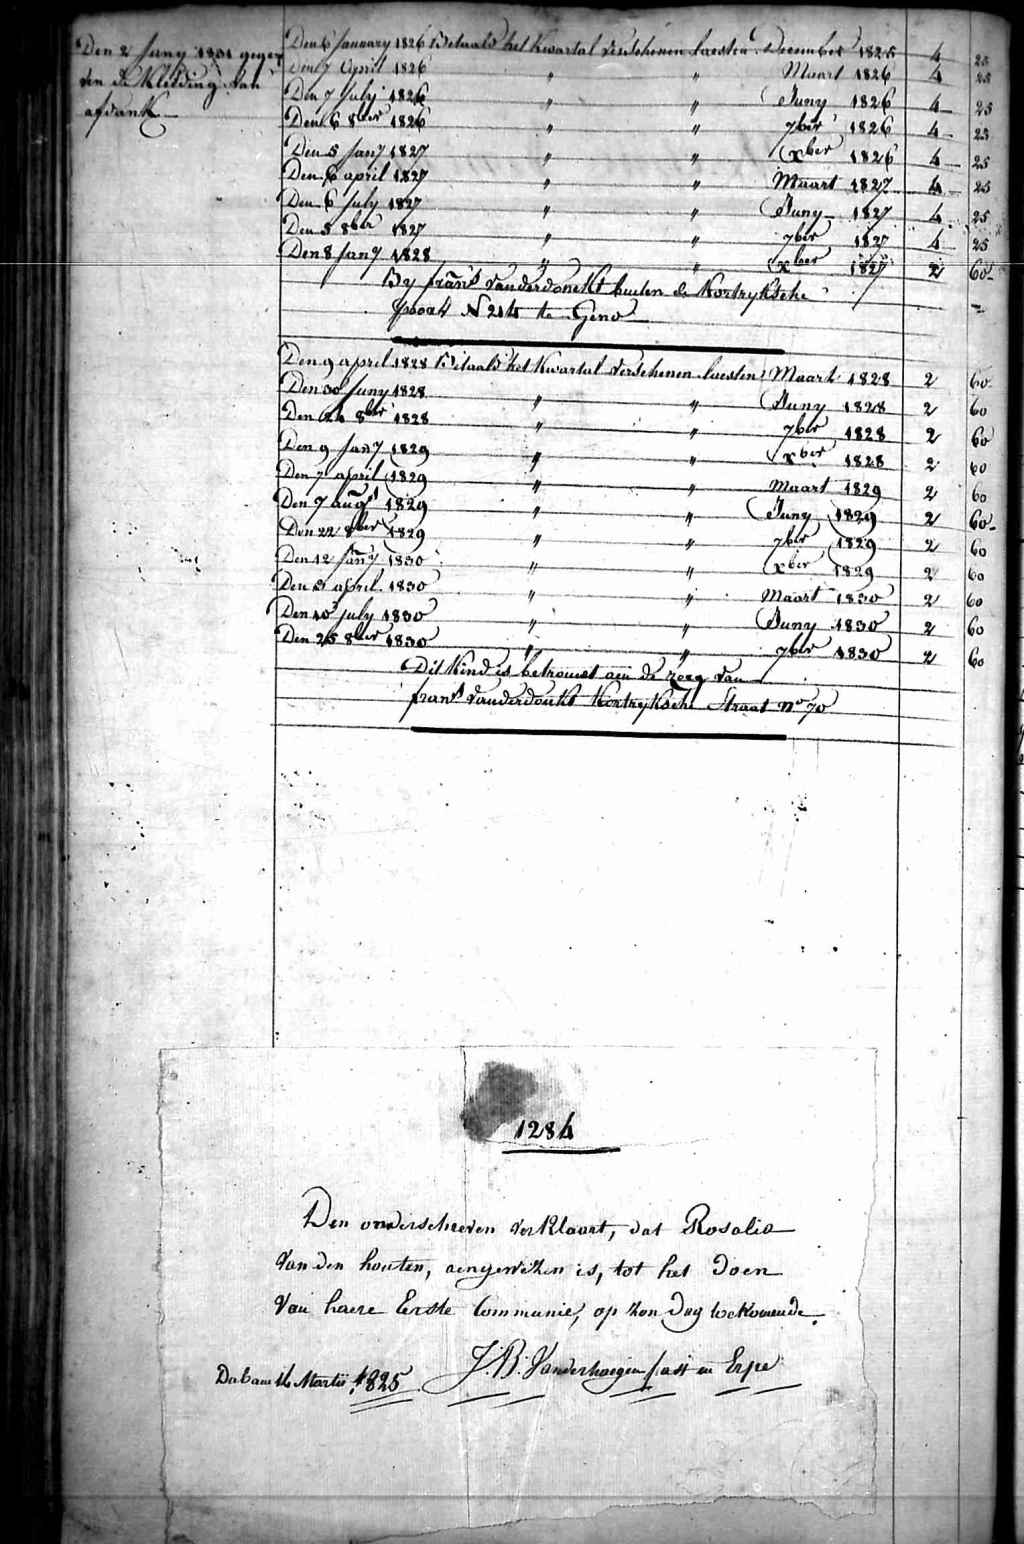 Den 2 Juny 1831 gegev
ven de Kleeding van
afdank
Den 6 January 1826 Betaald het Kwartal verschenen laesten December 1825 4 25
Den 7 April 1826 " " Maart 1826 4 25
Den 7 July 1826 " " Juny 1826 4 25
Den 6 8ber 1826 " " 7ber 1826 4 25
Den 5 Jany 1827 " " xber 1826 4 25
Den 6 april 1827 " " Maart 1827 4 25
Den 6 July 1827 " " Juny 1827 4 25
Den 5 8ber 1827 " " 7ber 1827 4 25
Den 8 Jany 1828 " " xber 1827 2 60
By frans vanderdonckt buiten de Kortryksche
poort N 214 te Gend
Den 9 april 1828 Betaald het Kwartal verschenen laesten Maart 1828 2 60
Den 30 Juny 1828 " " Juny 1828 2 60
Den 24 8ber 1828 " " 7ber 1828 2 60
Den 9 Jany 1829 " " xber 1828 2 60
Den 7 april 1829 " " Maart 1829 2 60
Den 7 augt 1829 " " Juny 1829 2 60
Den 22 8ber 1829 " " 7ber 1829 2 60
Den 12 Jany 1830 " " xber 1829 2 60
Den 5 april 1830 " " Maart 1830 2 60
Den 10 July 1830 " " Juny 1830 2 60
Den 25 8ber 1830 " " 7ber 1830 2 60
Dit Kind is betrouwt aen de zorg van
frans Vanderdonckt Kortryksche Straat no 70
1284
Den onderschreven verklaart, dat Rosalia
Van den houten, aengewezen is, tot het doen
Van haere Eerste Communie, op zondag toekomende.
J. B. Vanderhaegen past in Erpe
Dabam 16 Martii 1825